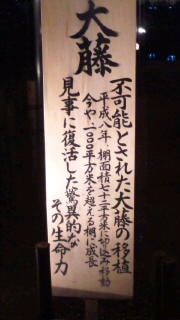 大藤
不可能とされた大藤の移植
平成八年、棚面積七十二平方米に切込み移動
今や、一、〇〇〇平方米を超える棚に成長
見事に復活した驚異的な
その生命力